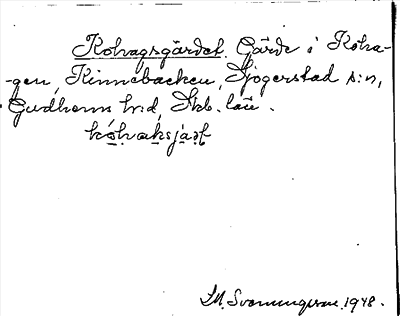 Kohagsgärdet. Gärde i Koha-
-gen, Kinnebacken, Sjogerstad s:n,
Gudhems h:d, Skb. län.
kóhaksjaʈ
M. Svenningsson. 1948.